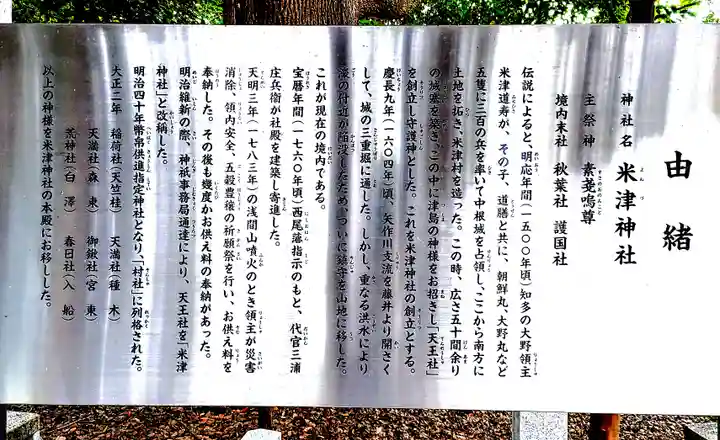 由緒
神社名 米津神社
主祭神 素戔嗚尊
境内末社 秋葉社 護国社
伝説によると、明応年間(一五〇〇年頃)知多の大野領主
米津道寿が、その子、道膳と共に、朝鮮丸、大野丸など
五隻に三百の兵を率いて中根城を占領し、ここから南方に
土地を拓き、米津村を造った。この時、広さ五十間余り
の城塞を築き、この中に津島の神様をお招きし「天王社」
を創立し守護神とした。これを米津神社の創立とする。
慶長九年(一六〇四年)頃、矢作川支流を藤井より開さく
して、城の三重掘に通した。しかし、重なる洪水により
濠の付近が陥没したため、ついに鎮守を山地に移した。
これが現在の境内である。
宝暦年間(一七六〇年頃)西尾藩指示のもと、代官三浦
庄兵衛が社殿を建築し寄進した。
天明三年(一七八三年)の浅間山噴火のとき領主が災害
消除、領内安全、五穀豊穣の祈願祭を行い、お供え料を
奉納した。その後も幾度かお供え料の奉納があった。
明治維新の際、神祇事務局通達により、天王社を「米津
神社」と改称した。
明治四十年幣帛供進指定神社となり、「村社」に列格された。
大正二年 稲荷社(天竺桂) 天満社(種木)
天満社(森東) 御鍬社(宮東)
荒神社(白澤) 春日社(入船)
以上の神様を米津神社の本殿にお移しした。